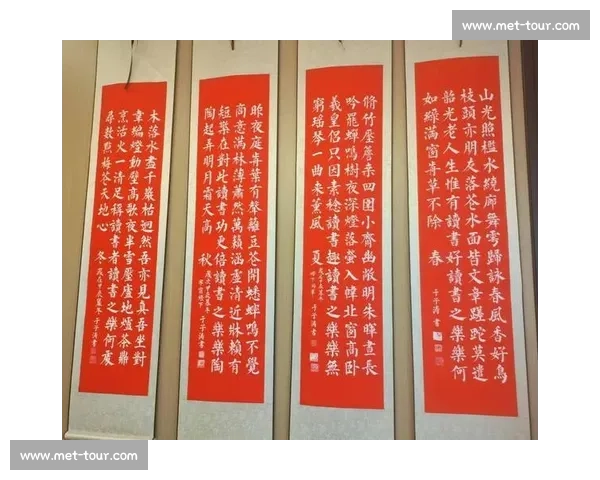 www.met-tour.com
山光照檻水繞廊舞雩歸詠春風香好鳥
枝頭亦朋友落花水面皆文章蹉跎莫遣
韶光老人生惟有讀書好讀書之樂樂何
如綠滿窗前草不除 春 于子濤書
脩竹壓簷桑四圍小齋幽敞明朱暉晝長
吟罷蟬鳴樹夜深燼落螢入幃北窗高卧
羲皇侶只因素稔讀書趣讀書之樂樂無
窮瑤琴一曲來薰風 夏 于子濤書
昨夜庭前葉有聲籬豆花開蟋蟀鳴不覺
商意滿林薄蕭然萬籟涵虛清近牀賴有
短檠在對此讀書功更倍讀書之樂樂陶
陶起弄明月霜天高 秋 于子濤書
木落水盡千巖枯迥然吾亦見真吾坐對
韋編燈動壁高歌夜半雪壓廬地爐茶鼎
烹活火一清足稱讀書者讀書之樂何處
尋數點梅花天地心 冬 于子濤書
www.met-tour.com